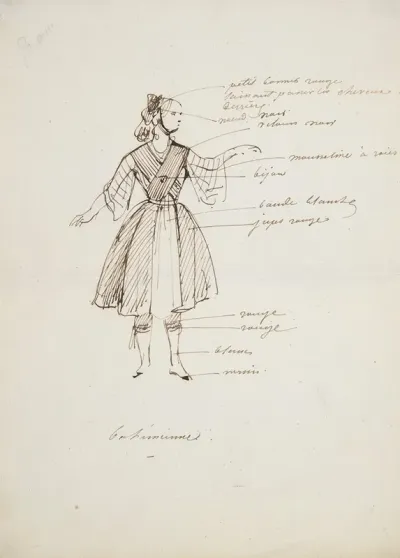 petit bonnet rouge
laissant passer les cheveux
derrière
noeud noir
velours noir
mousseline à raies
bijou
bande blanche
jupe rouge
rouge
rouge
blanc
bohémienne